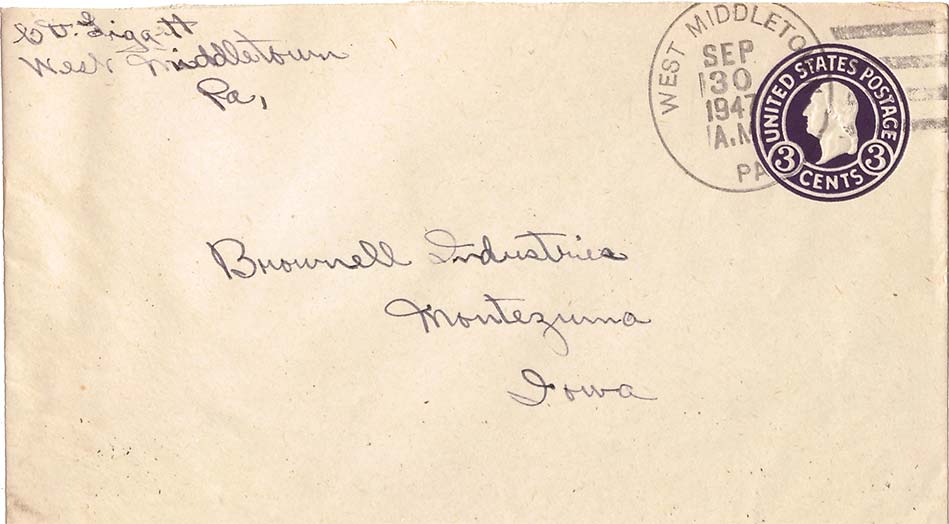 West Middletown
Pa,
WEST MIDDLETO
SEP
30
1947
A.M
PA
UNITED STATES POSTAGE
3 CENTS 3
Brownell Industries
Montezuma
Iowa